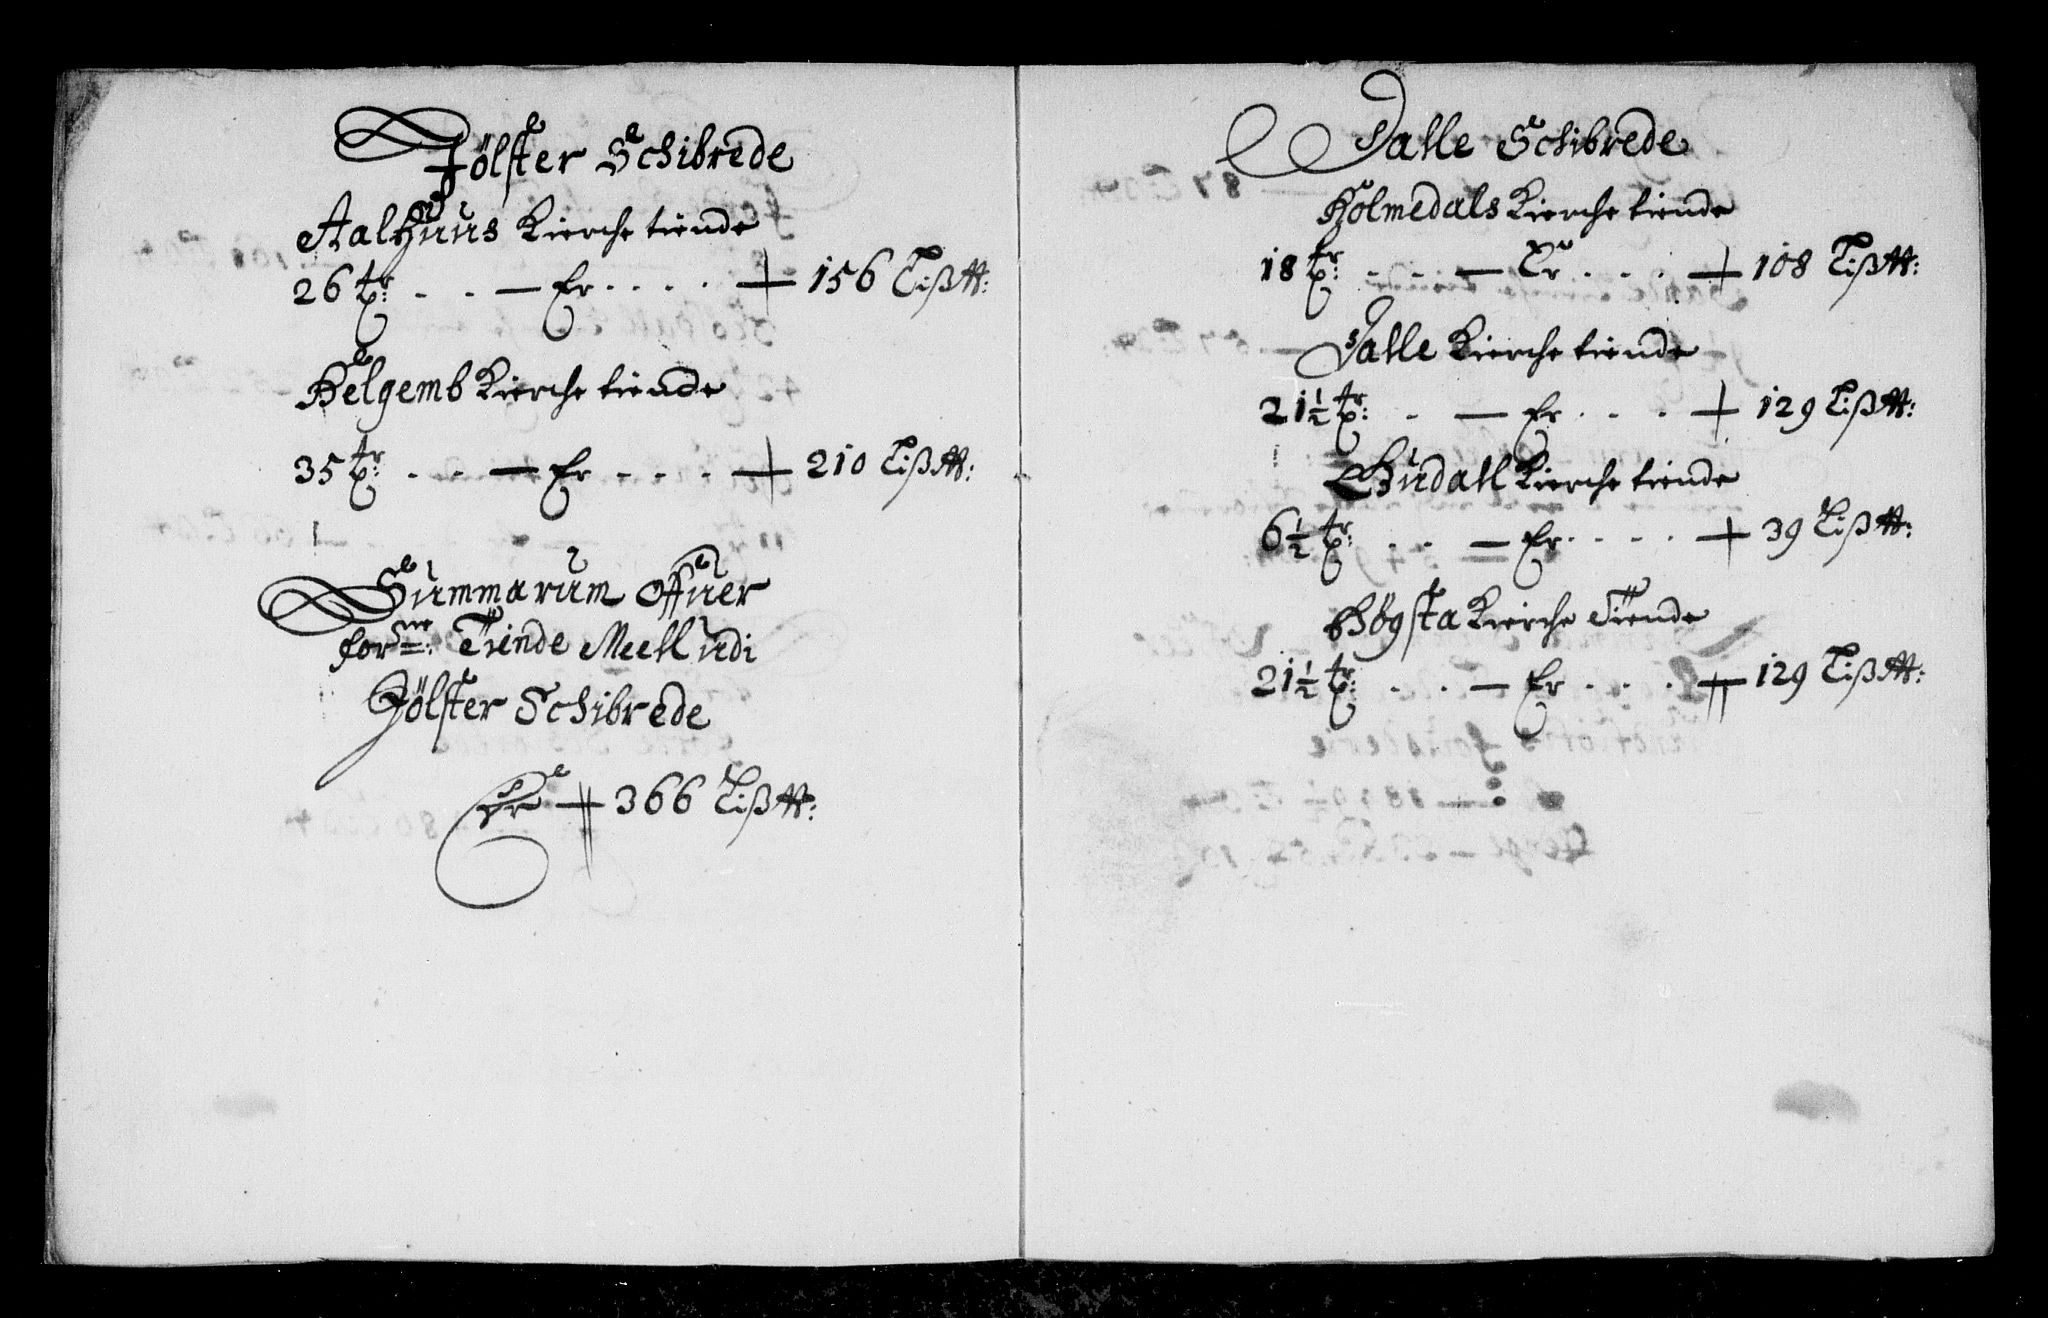 Jölster Schibrede
Aalhuus Kierche tiende
26 tr: . . — Er . . . . + 156 Lißtt:
Helgemb Kierche tiende
35 tr: . . — Er . . . + 210 Lißtt:
Summarum Offuer
for.ne: Tiende Meell udi
Jölster Schibrede
Er + 366 Lißtt:
Dalle Schibrede
Holmedals Kierche tiende
18 tr: . . — Er . . . + 108 Lißtt:
Dalle Kierche tiende
21½ tr: . — Er . . . + 129 Lißtt:
Guddall Kierche tiende
6½ tr: . . — Er . . . . + 39 Lißtt:
Högsta Kierche Tiende
21½ tr: . . — Er . . . + 129 Lißtt: